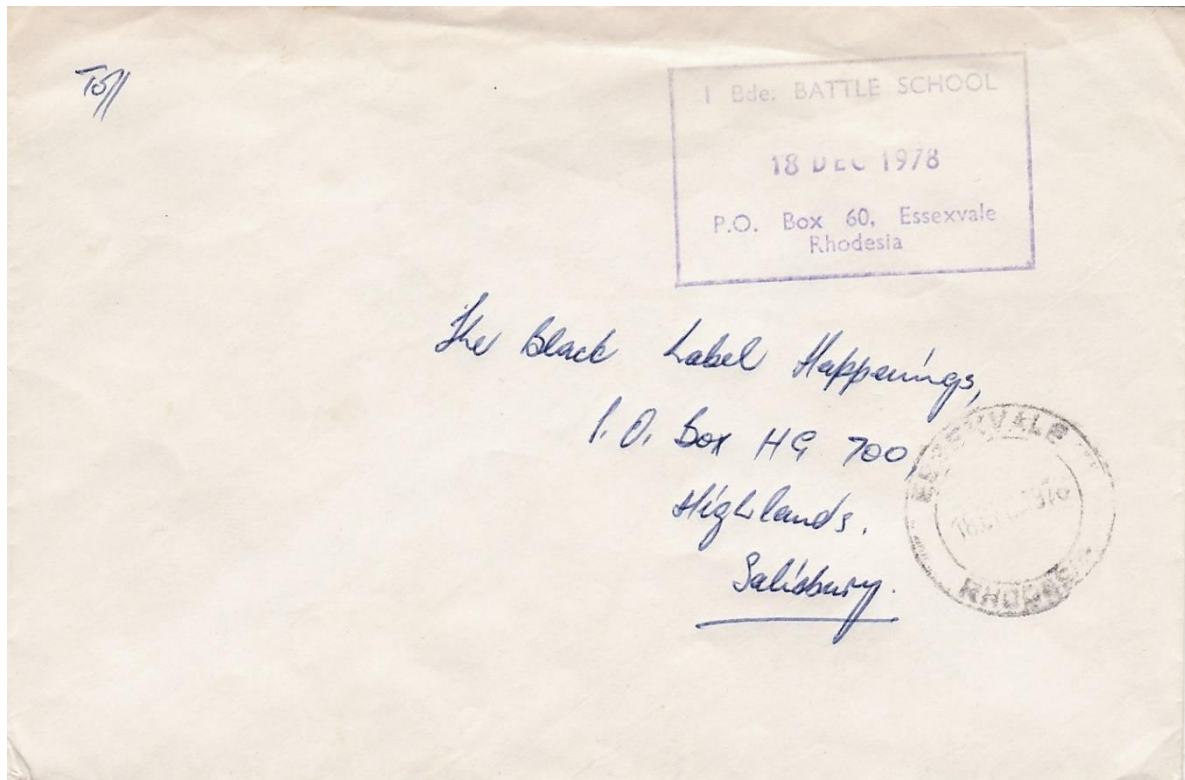 To//
1 Bde. BATTLE SCHOOL
18 DEC 1978
P.O. Box 60, Essexvale
Rhodesia
The Black Label Happenings,
P.O. Box HG 700,
Highlands.
Salisbury.
ESSEXVALE
RHODESIA